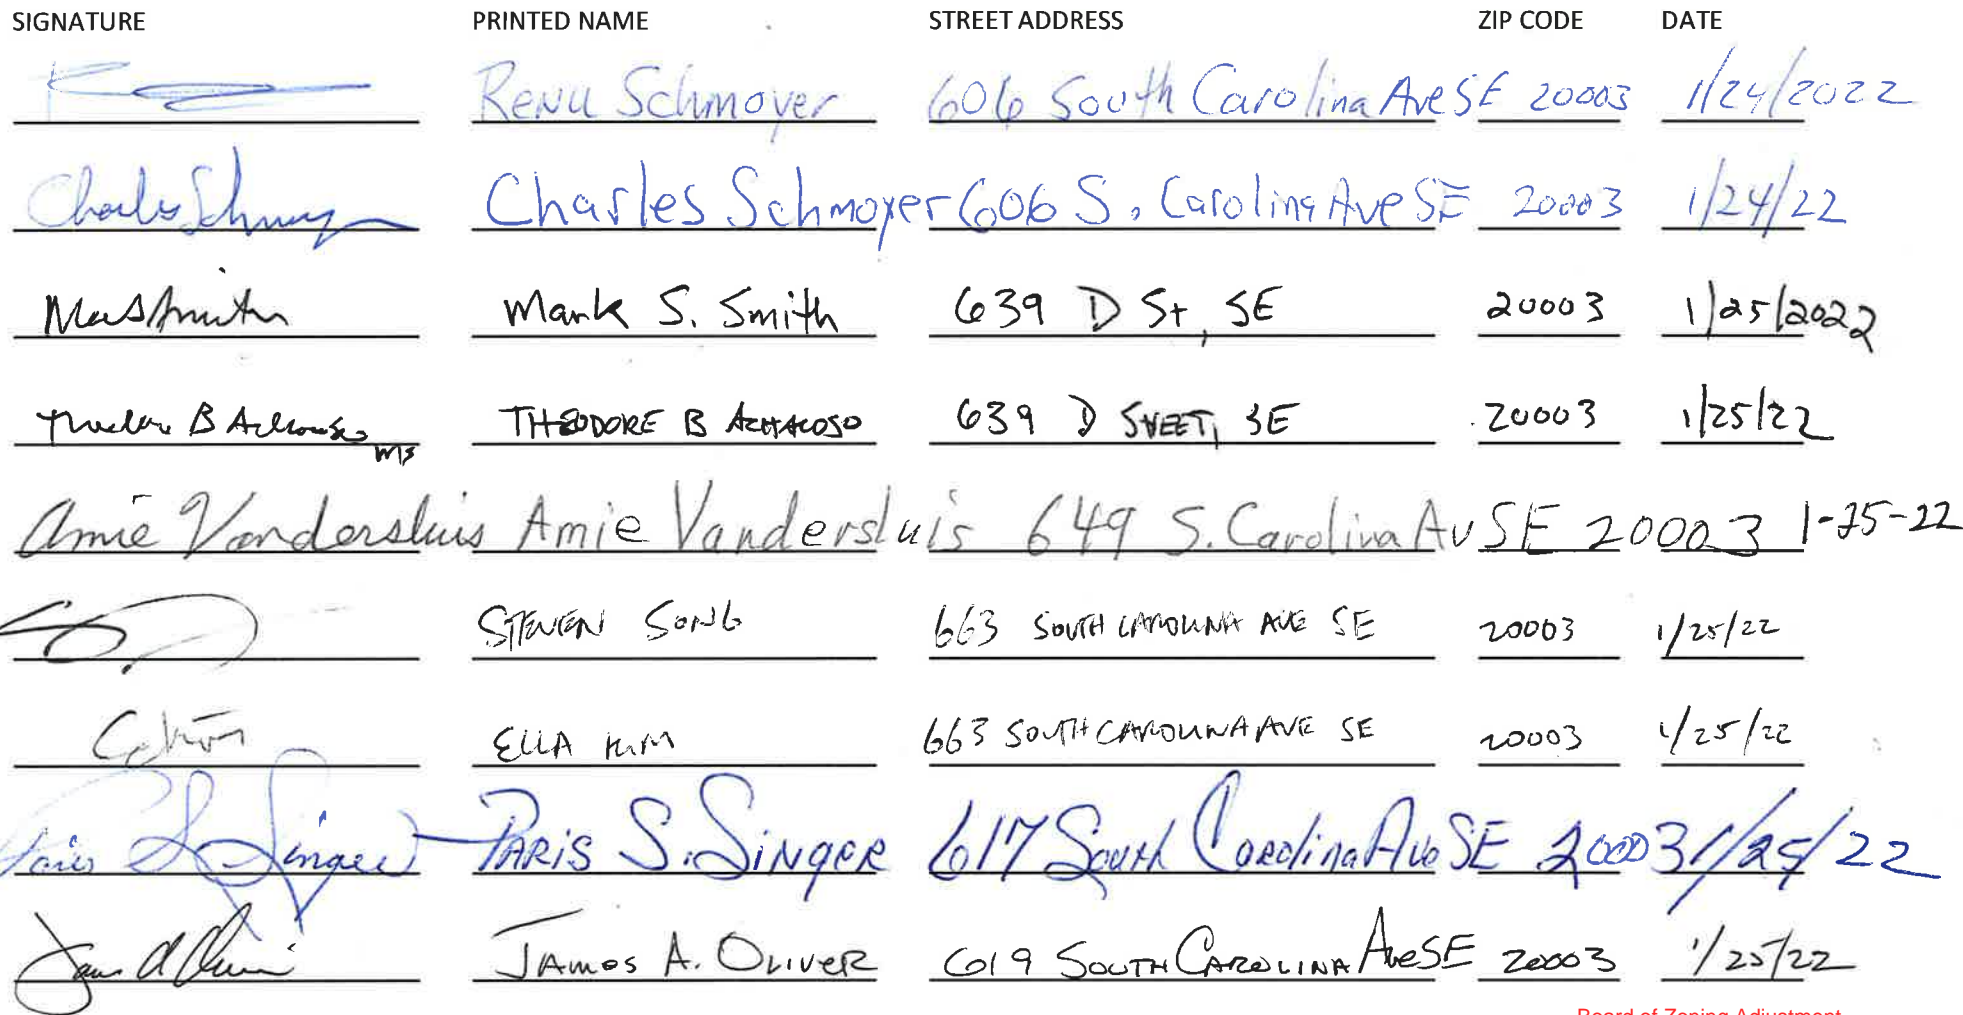 SIGNATURE PRINTED NAME STREET ADDRESS ZIP CODE DATE
Renu Schmoyer 606 South Carolina Ave SE 20003 1/24/2022
Charles Schmoyer Charles Schmoyer 606 S. Carolina Ave SE 20003 1/24/22
Mark S. Smith 639 D St, SE 20003 1/25/2022
THEODORE B ACHACOSO 639 D STREET, SE 20003 1/25/22
Amie Vandersluis Amie Vandersluis 649 S. Carolina Av SE 20003 1-25-22
STEVEN SONG 663 SOUTH CAROLINA AVE SE 20003 1/25/22
ELLA KIM 663 SOUTH CAROLINA AVE SE 20003 1/25/22
Paris S Singer PARIS S. SINGER 617 South Carolina Ave SE 20003 1/25/22
JAMES A. OLIVER 619 SOUTH CAROLINA Ave SE 20003 1/25/22
Board of Zoning Adjustment